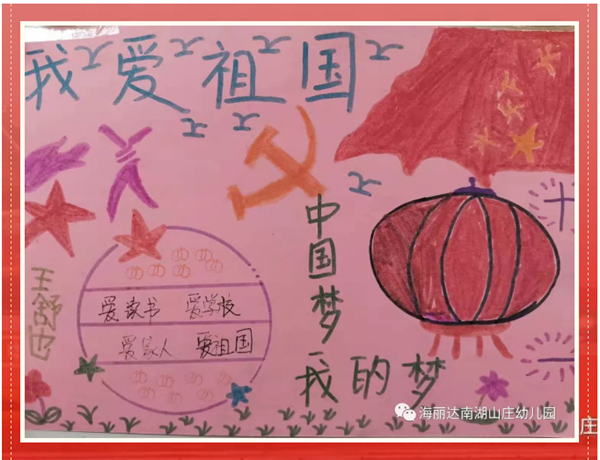 我爱祖国
中国梦
我的梦
爱读书 爱学校
爱家人 爱祖国
海丽达南湖山庄幼儿园
庄